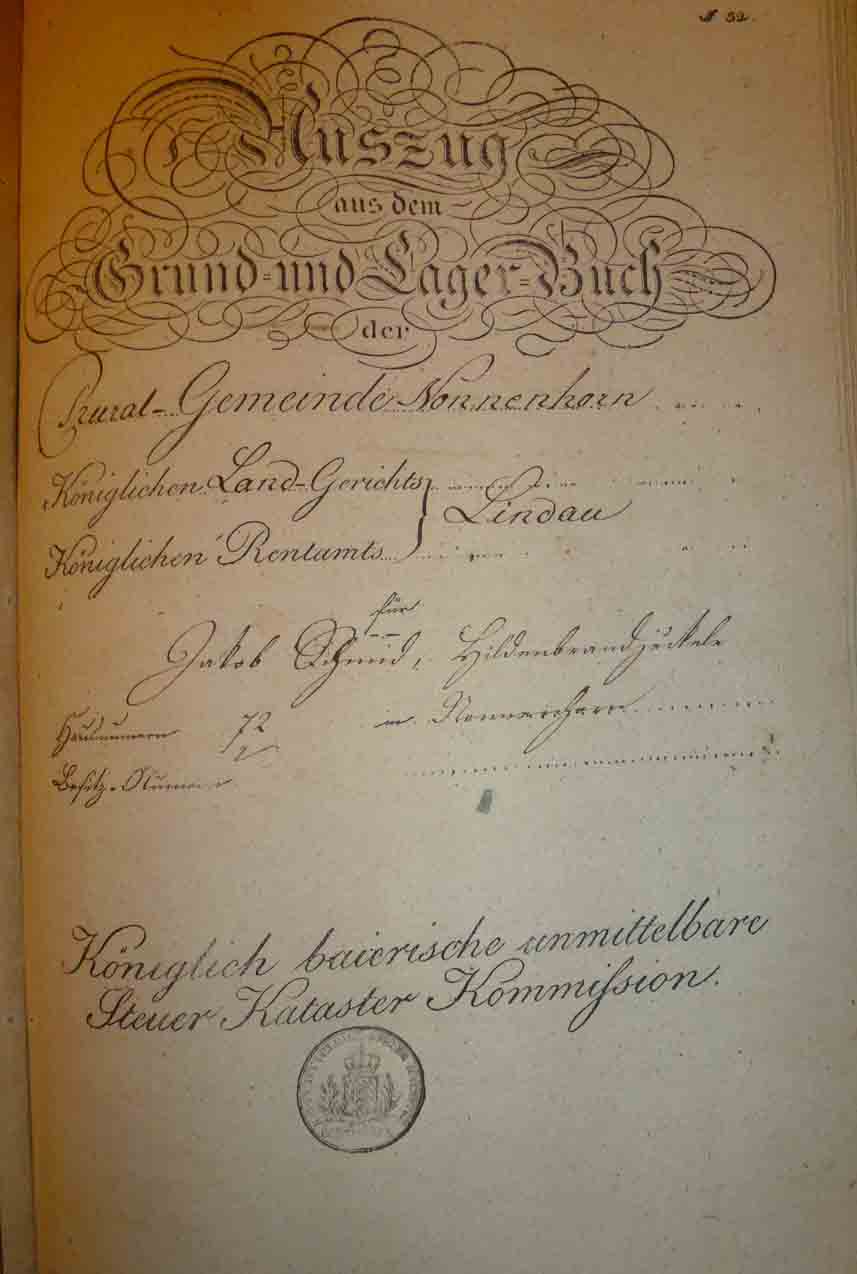 N 32.
Auszug
aus dem
Grund- und Lager-Buch
der
Rural-Gemeinde Nonnenhorn
Königlichen Land-Gerichts
Lindau
Königlichen Rentamts
für
Jakob Schmid, Hildenbrandjäckele
Hausnummern 72 in Nonnenhorn
Besitz-Numer
Königlich baierische unmittelbare
Steuer Kataster Kommission.